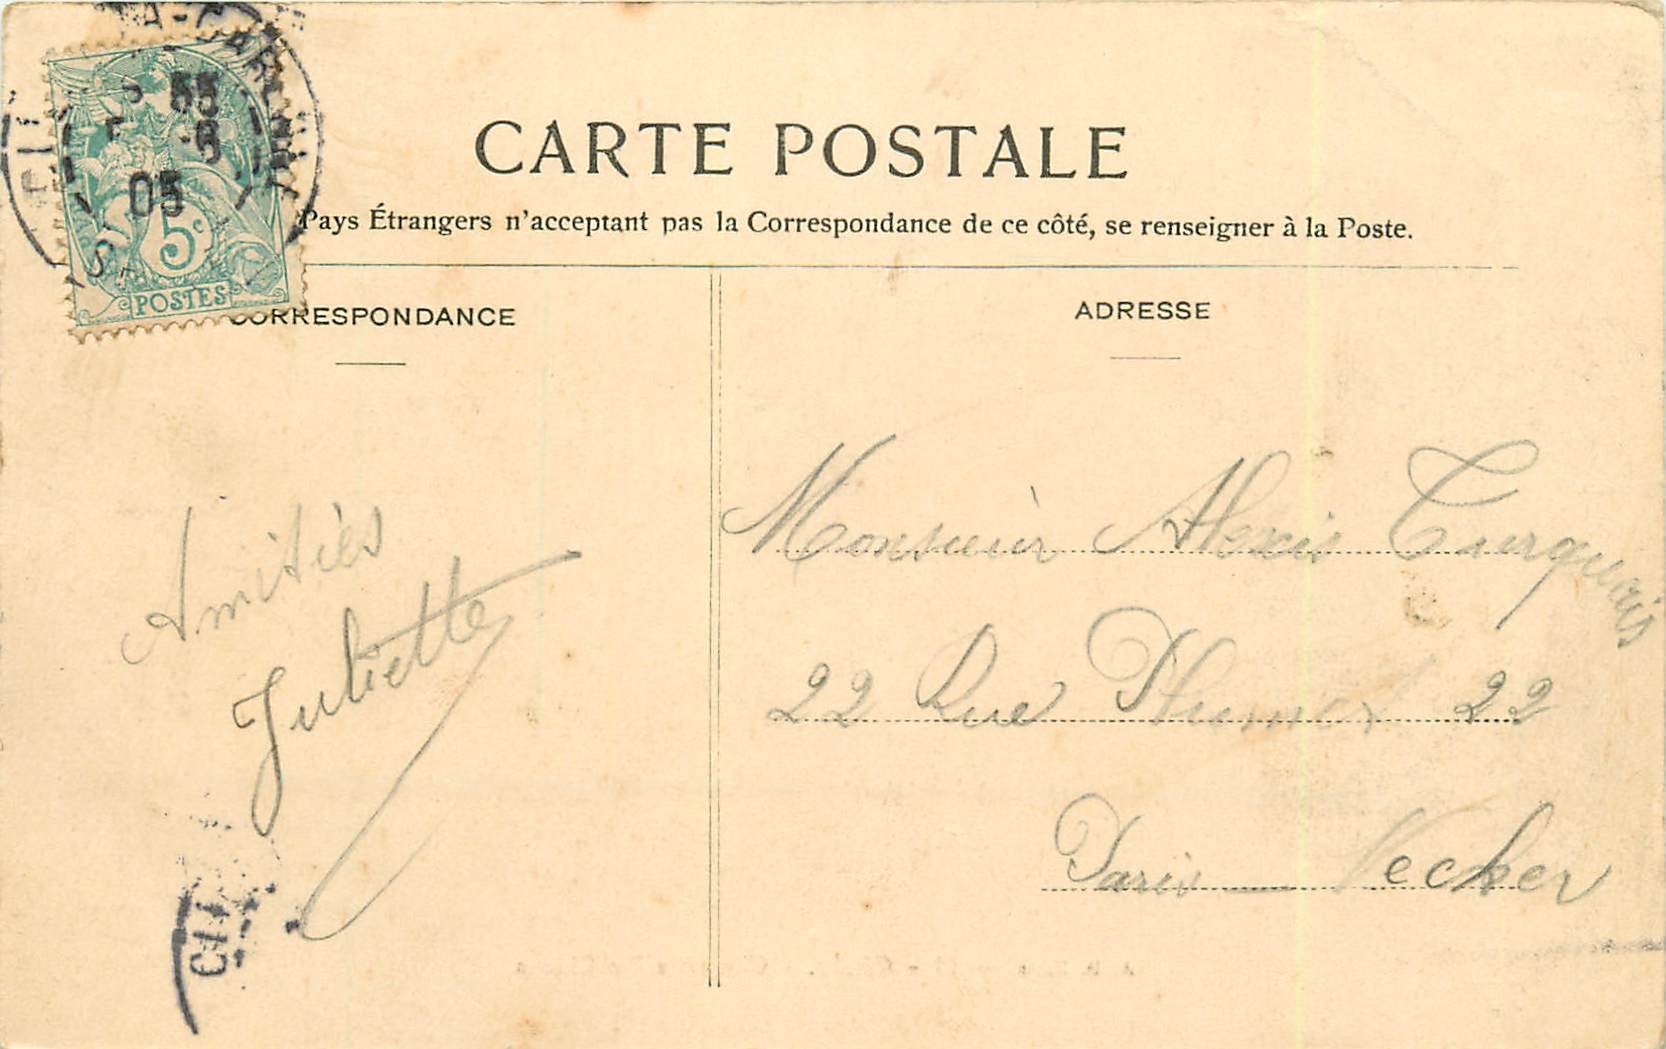 CARTE POSTALE
Pays Étrangers n'acceptant pas la Correspondance de ce côté, se renseigner à la Poste.
5c
POSTES
05
CORRESPONDANCE
ADRESSE
Amitiés
Juliette
Monsieur Alexis Turquais
22 Rue 22
Paris — Necker